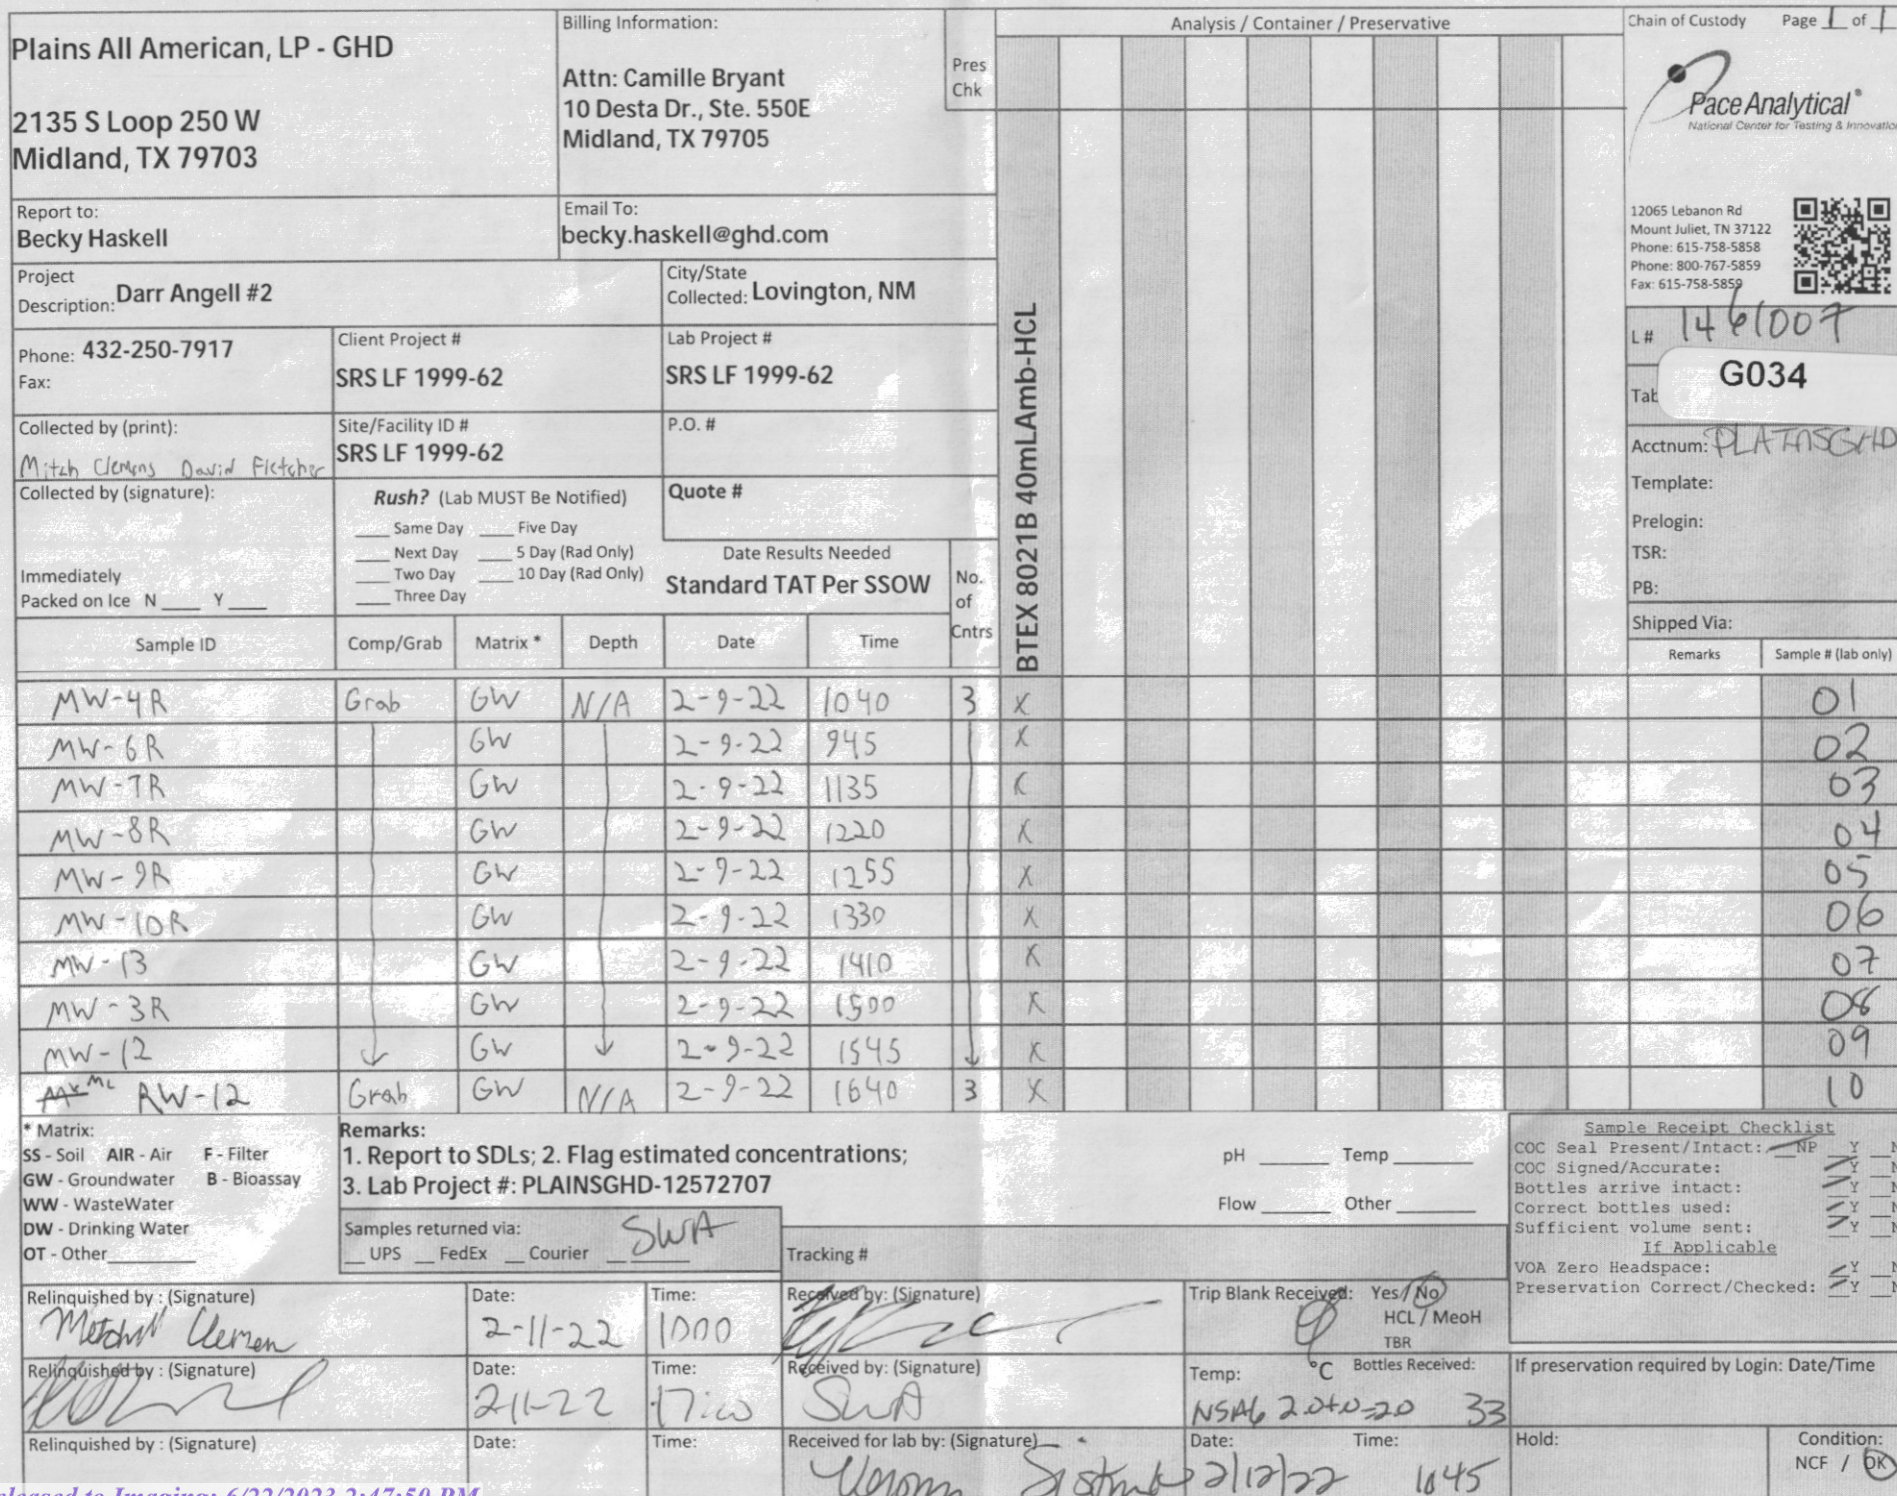 Plains All American, LP - GHD
2135 S Loop 250 W
Midland, TX 79703
Billing Information:
Attn: Camille Bryant
10 Desta Dr., Ste. 550E
Midland, TX 79705
Pres
Chk
Analysis / Container / Preservative
Chain of Custody Page 1 of 1
Pace Analytical®
National Center for Testing & Innovation
12065 Lebanon Rd
Mount Juliet, TN 37122
Phone: 615-758-5858
Phone: 800-767-5859
Fax: 615-758-5859
Report to:
Becky Haskell
Email To:
becky.haskell@ghd.com
Project
Description: Darr Angell #2
City/State
Collected: Lovington, NM
Phone: 432-250-7917
Fax:
Client Project #
SRS LF 1999-62
Lab Project #
SRS LF 1999-62
L# 1461007
G034
Collected by (print):
Mitch Clemens David Fletcher
Site/Facility ID #
SRS LF 1999-62
P.O. #
Acctnum: PLAINSGHD
Template:
Prelogin:
TSR:
PB:
Shipped Via:
Collected by (signature):
Immediately
Packed on Ice N ____ Y ____
Rush? (Lab MUST Be Notified)
____ Same Day ____ Five Day
____ Next Day ____ 5 Day (Rad Only)
____ Two Day ____ 10 Day (Rad Only)
____ Three Day
Quote #
Date Results Needed
Standard TAT Per SSOW
No.
of
Cntrs
BTEX 8021B 40mLAmb-HCL
Sample ID Comp/Grab Matrix * Depth Date Time Remarks Sample # (lab only)
MW-4R Grab GW N/A 2-9-22 1040 3 X 01
MW-6R GW 2-9-22 945 X 02
MW-7R GW 2-9-22 1135 X 03
MW-8R GW 2-9-22 1220 X 04
MW-9R GW 2-9-22 1255 X 05
MW-10R GW 2-9-22 1330 X 06
MW-13 GW 2-9-22 1410 X 07
MW-3R GW 2-9-22 1500 X 08
MW-12 GW 2-9-22 1545 X 09
MC RW-12 Grab GW N/A 2-9-22 1640 3 X 10
* Matrix:
SS - Soil AIR - Air F - Filter
GW - Groundwater B - Bioassay
WW - WasteWater
DW - Drinking Water
OT - Other
Remarks:
1. Report to SDLs; 2. Flag estimated concentrations;
3. Lab Project #: PLAINSGHD-12572707
pH ____ Temp ____
Flow ____ Other ____
Samples returned via:
__ UPS __ FedEx __ Courier SWA
Tracking #
Sample Receipt Checklist
COC Seal Present/Intact: NP Y N
COC Signed/Accurate: Y N
Bottles arrive intact: Y N
Correct bottles used: Y N
Sufficient volume sent: Y N
If Applicable
VOA Zero Headspace: Y N
Preservation Correct/Checked: Y N
Relinquished by : (Signature)
Mitchell Clemen
Date:
2-11-22
Time:
1000
Received by: (Signature)
Trip Blank Received: Yes / No
HCL / MeoH
TBR
Relinquished by : (Signature)
Date:
2-11-22
Time:
17:00
Received by: (Signature)
SWA
Temp: °C Bottles Received:
NSA6 2.0+0=2.0 33
If preservation required by Login: Date/Time
Relinquished by : (Signature)
Date:
Time:
Received for lab by: (Signature)
Date: 2/12/22
Time: 1045
Hold:
Condition:
NCF / OK
eleased to Imaging: 6/22/2023 2:47:50 PM